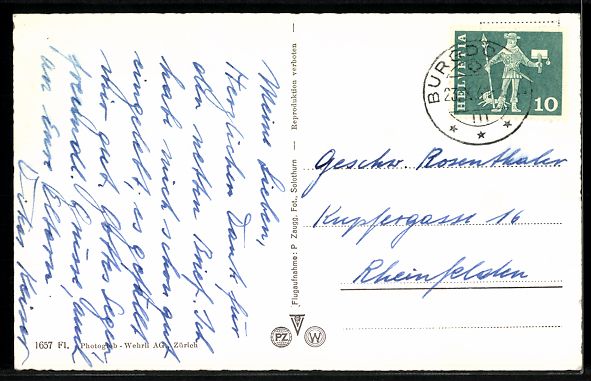 Meine Lieben,
Herzlichen Dank für
den netten Brief. Ich
hab mich schon gut
eingelebt, es gefällt
mir gut. Gottes Segen
freundl. Grüsse, auch
an eure Eltern
Flugaufnahme: P. Zaugg, Fot., Solothurn — Reproduktion verboten
1657 Fl. Photoglob - Wehrli AG., Zürich
PZ
W
BURGDO
HELVETIA
10
III
Geschw. Rosenthaler
Kupfergasse 16
Rheinfelden